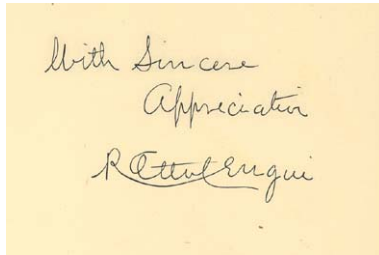 With Sincere
Appreciation
R Ottolengui